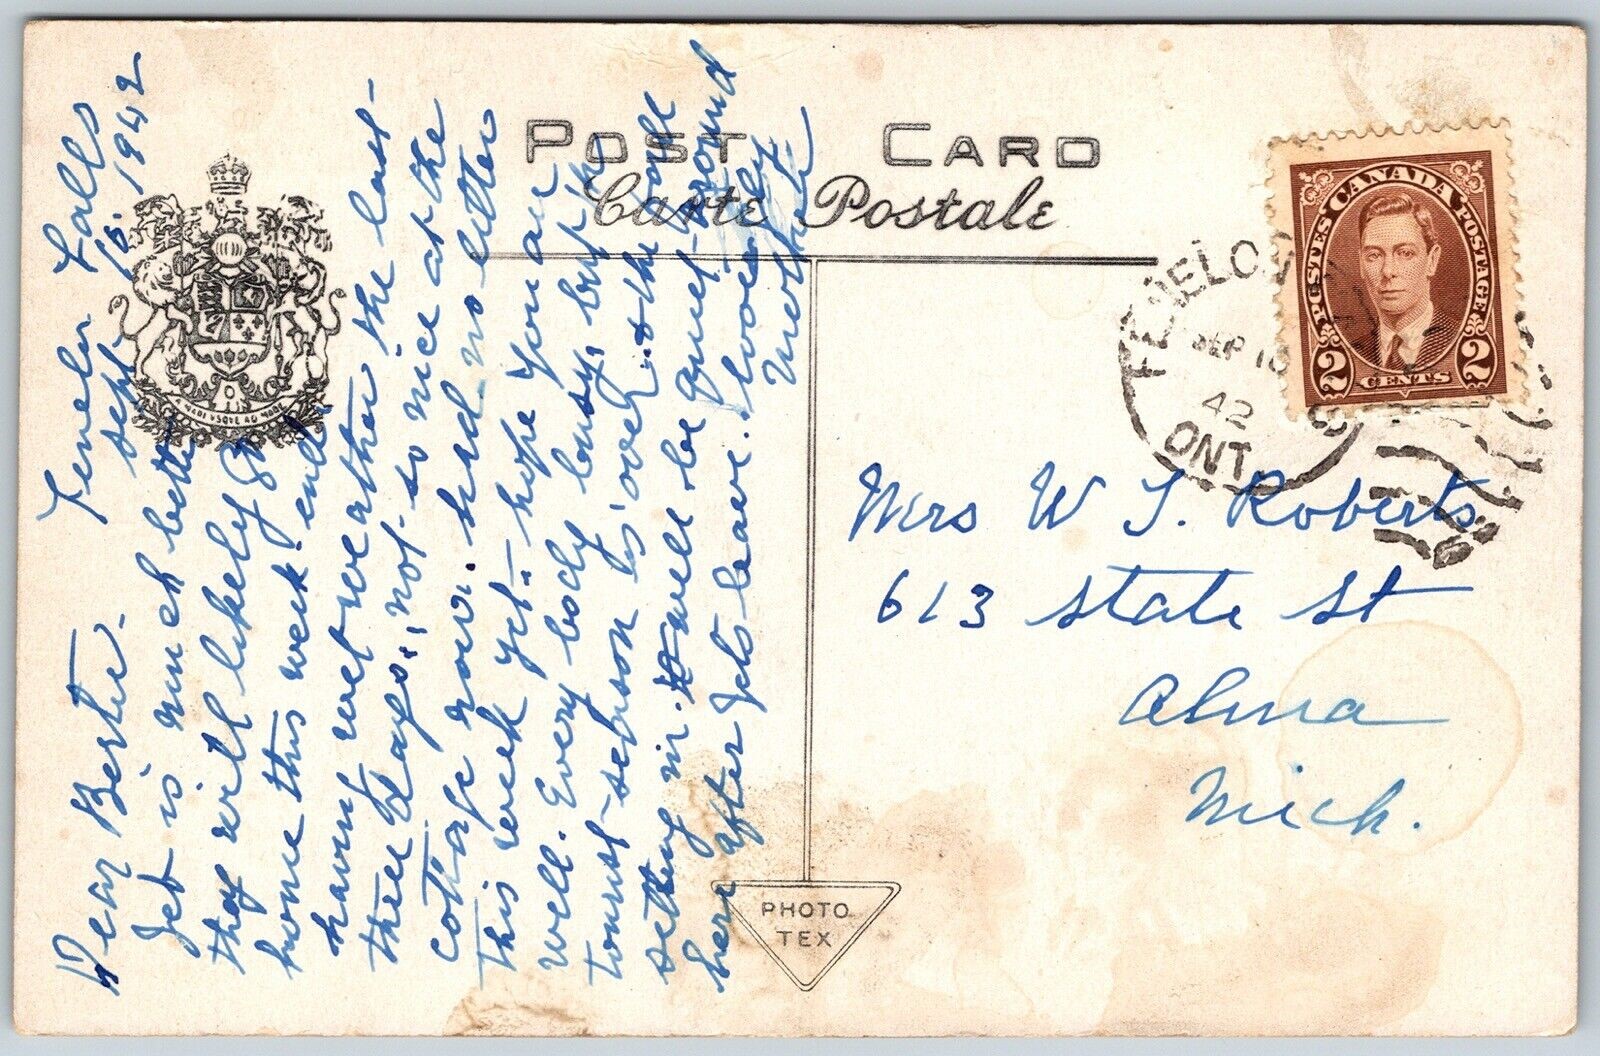 Fenelon Falls
Sept 16. 1942
Dear Bertie.
Jeb is much better
they will likely go
home this week end
having wet weather the last
three days, not so nice at the
cottage now. had no letter
this week yet - hope you are
well. Every body busy, but th
tourist season is over & the
setting in. will be quiet around
here after Jebs leave. lovingly
Mother
POST CARD
Carte Postale
A MARI USQUE AD MARE
PHOTO
TEX
FENELON
SEP 16
42
ONT
POSTES CANADA POSTAGE
2 CENTS 2
Mrs W J. Roberts
613 State St
Alma
Mich.